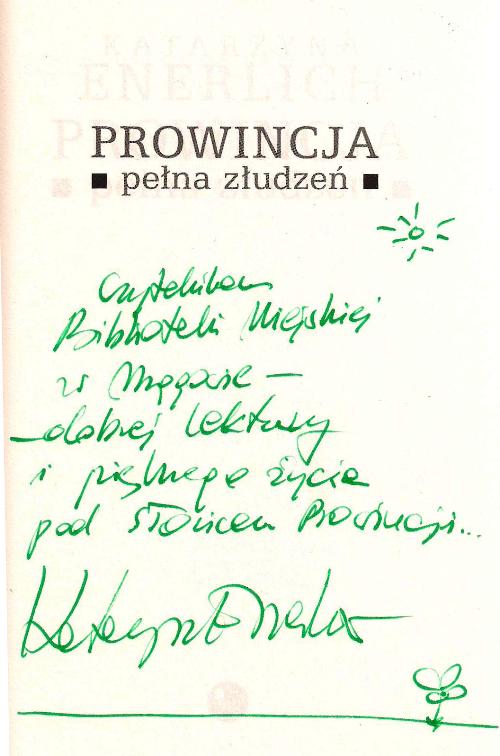 KATARZYNA
ENERLICH
PROWINCJA
pełna złudzeń
Czytelnikom
Biblioteki Miejskiej
w
dobrej lektury
i pięknego życia
pod słońcem Prowincji...